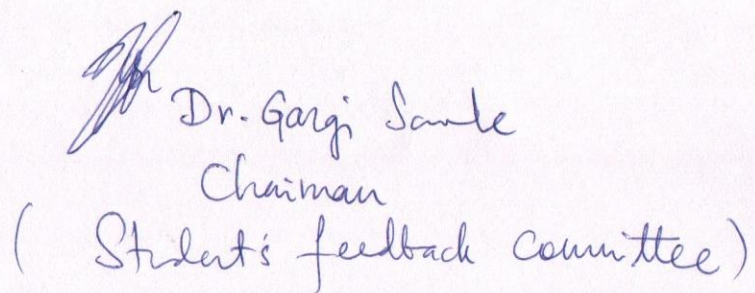 Dr. Gargi
Chairman
( Student's feedback committee )